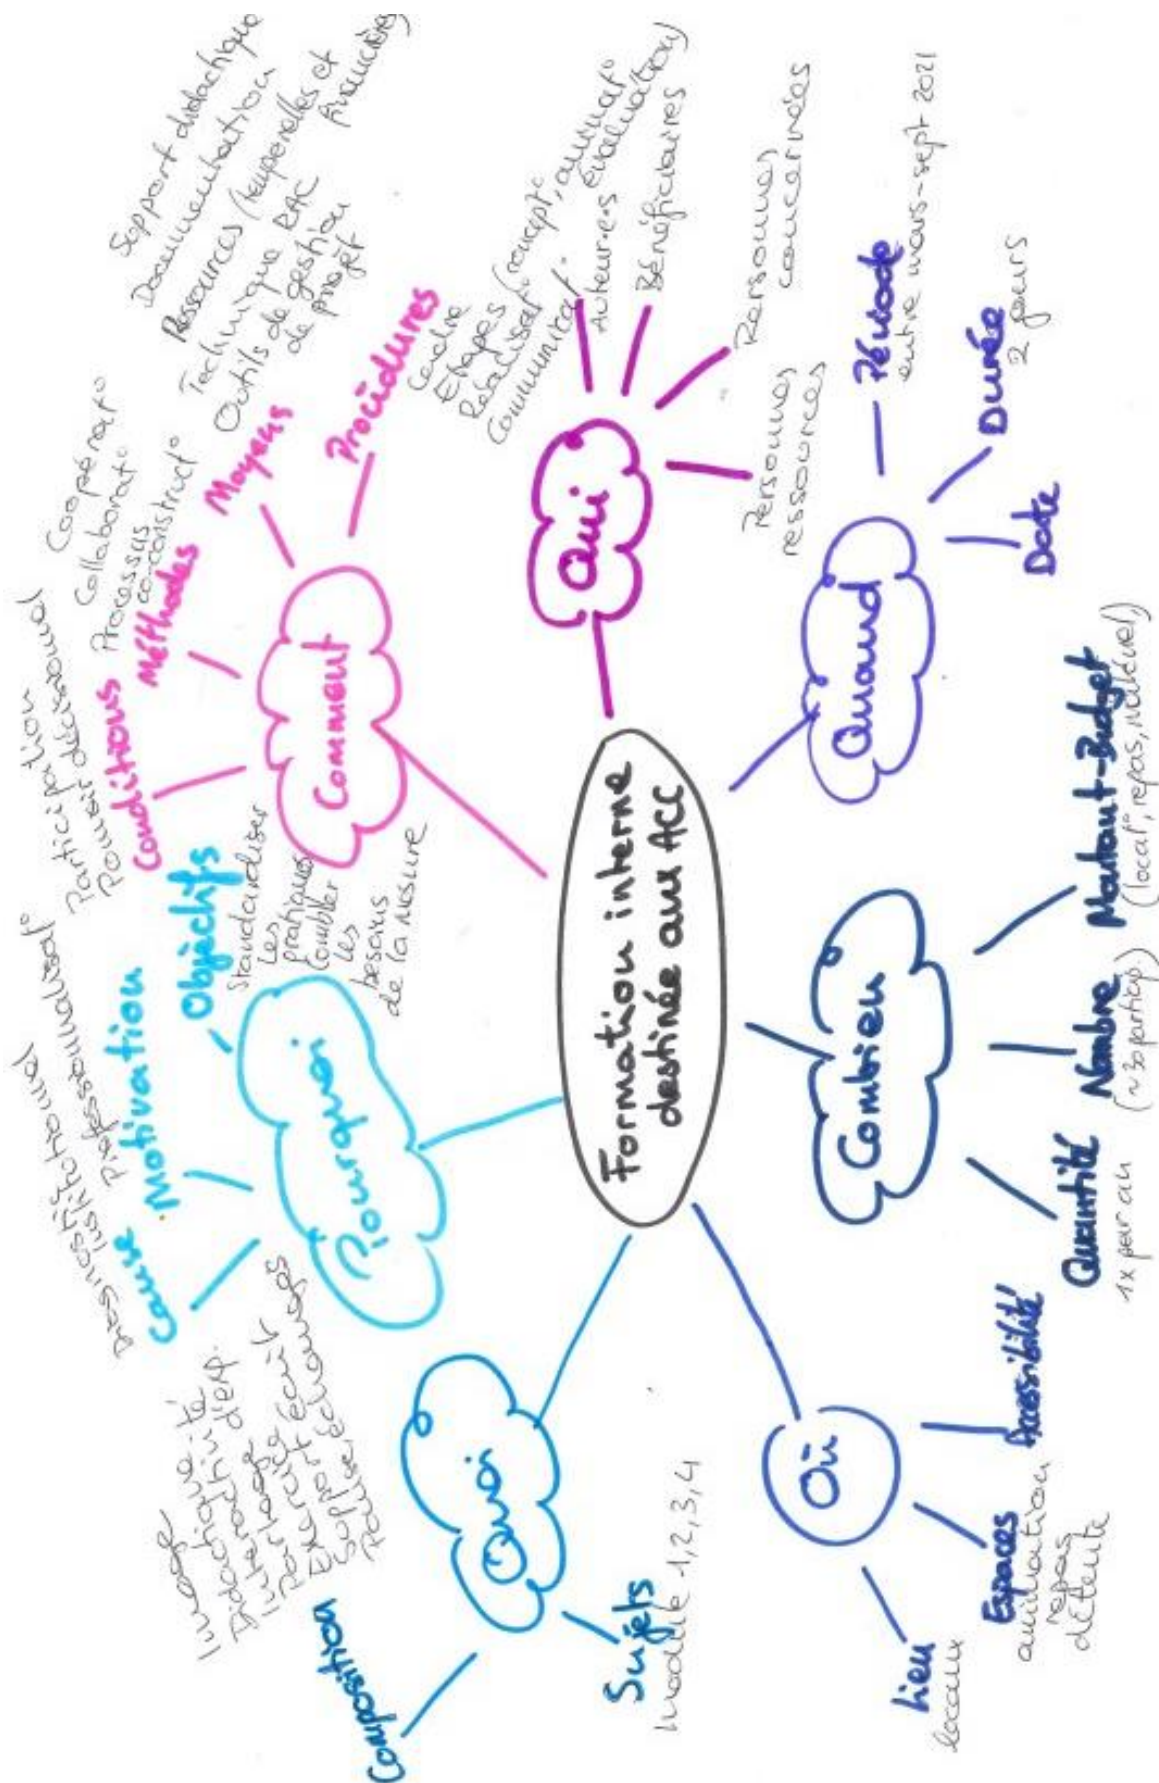 Formation interne
destinée aux ACC
Quoi
Composition
Image
Didactique
Interactivité
Partage d'exp.
Exercice
Support écrit
Pause, échanges
Sujets
module 1, 2, 3, 4
Pourquoi
Cause
Diagnostic
institutionnel
Motivation
Professionnalisat°
Objectifs
Standardiser
les
pratiques
Combler
les
besoins
de la mesure
Comment
Conditions
Participation
Pouvoir décisionnel
Méthodes
Coopérat°
Collaborat°
Processus
co-construct°
Moyens
Support didactique
Documentation
Ressources (temporelles et
financières)
Technique RAC
Outils de gestion
de projet
Procédures
Cadre
Etapes (concept°, animat°
Réalisat° évaluation)
Communicat°
Qui
Auteur·e·s
Bénéficiaires
Personnes
concernées
Personnes
ressources
Quand
Période
entre mars-sept 2021
Durée
2 jours
Date
Combien
Montant-Budget
(locat°, repas, matériel)
Nombre
(~30 particip.)
Quantité
1x par an
Où
Accessibilité
Espaces
animation
repas
détente
Lieu
locaux